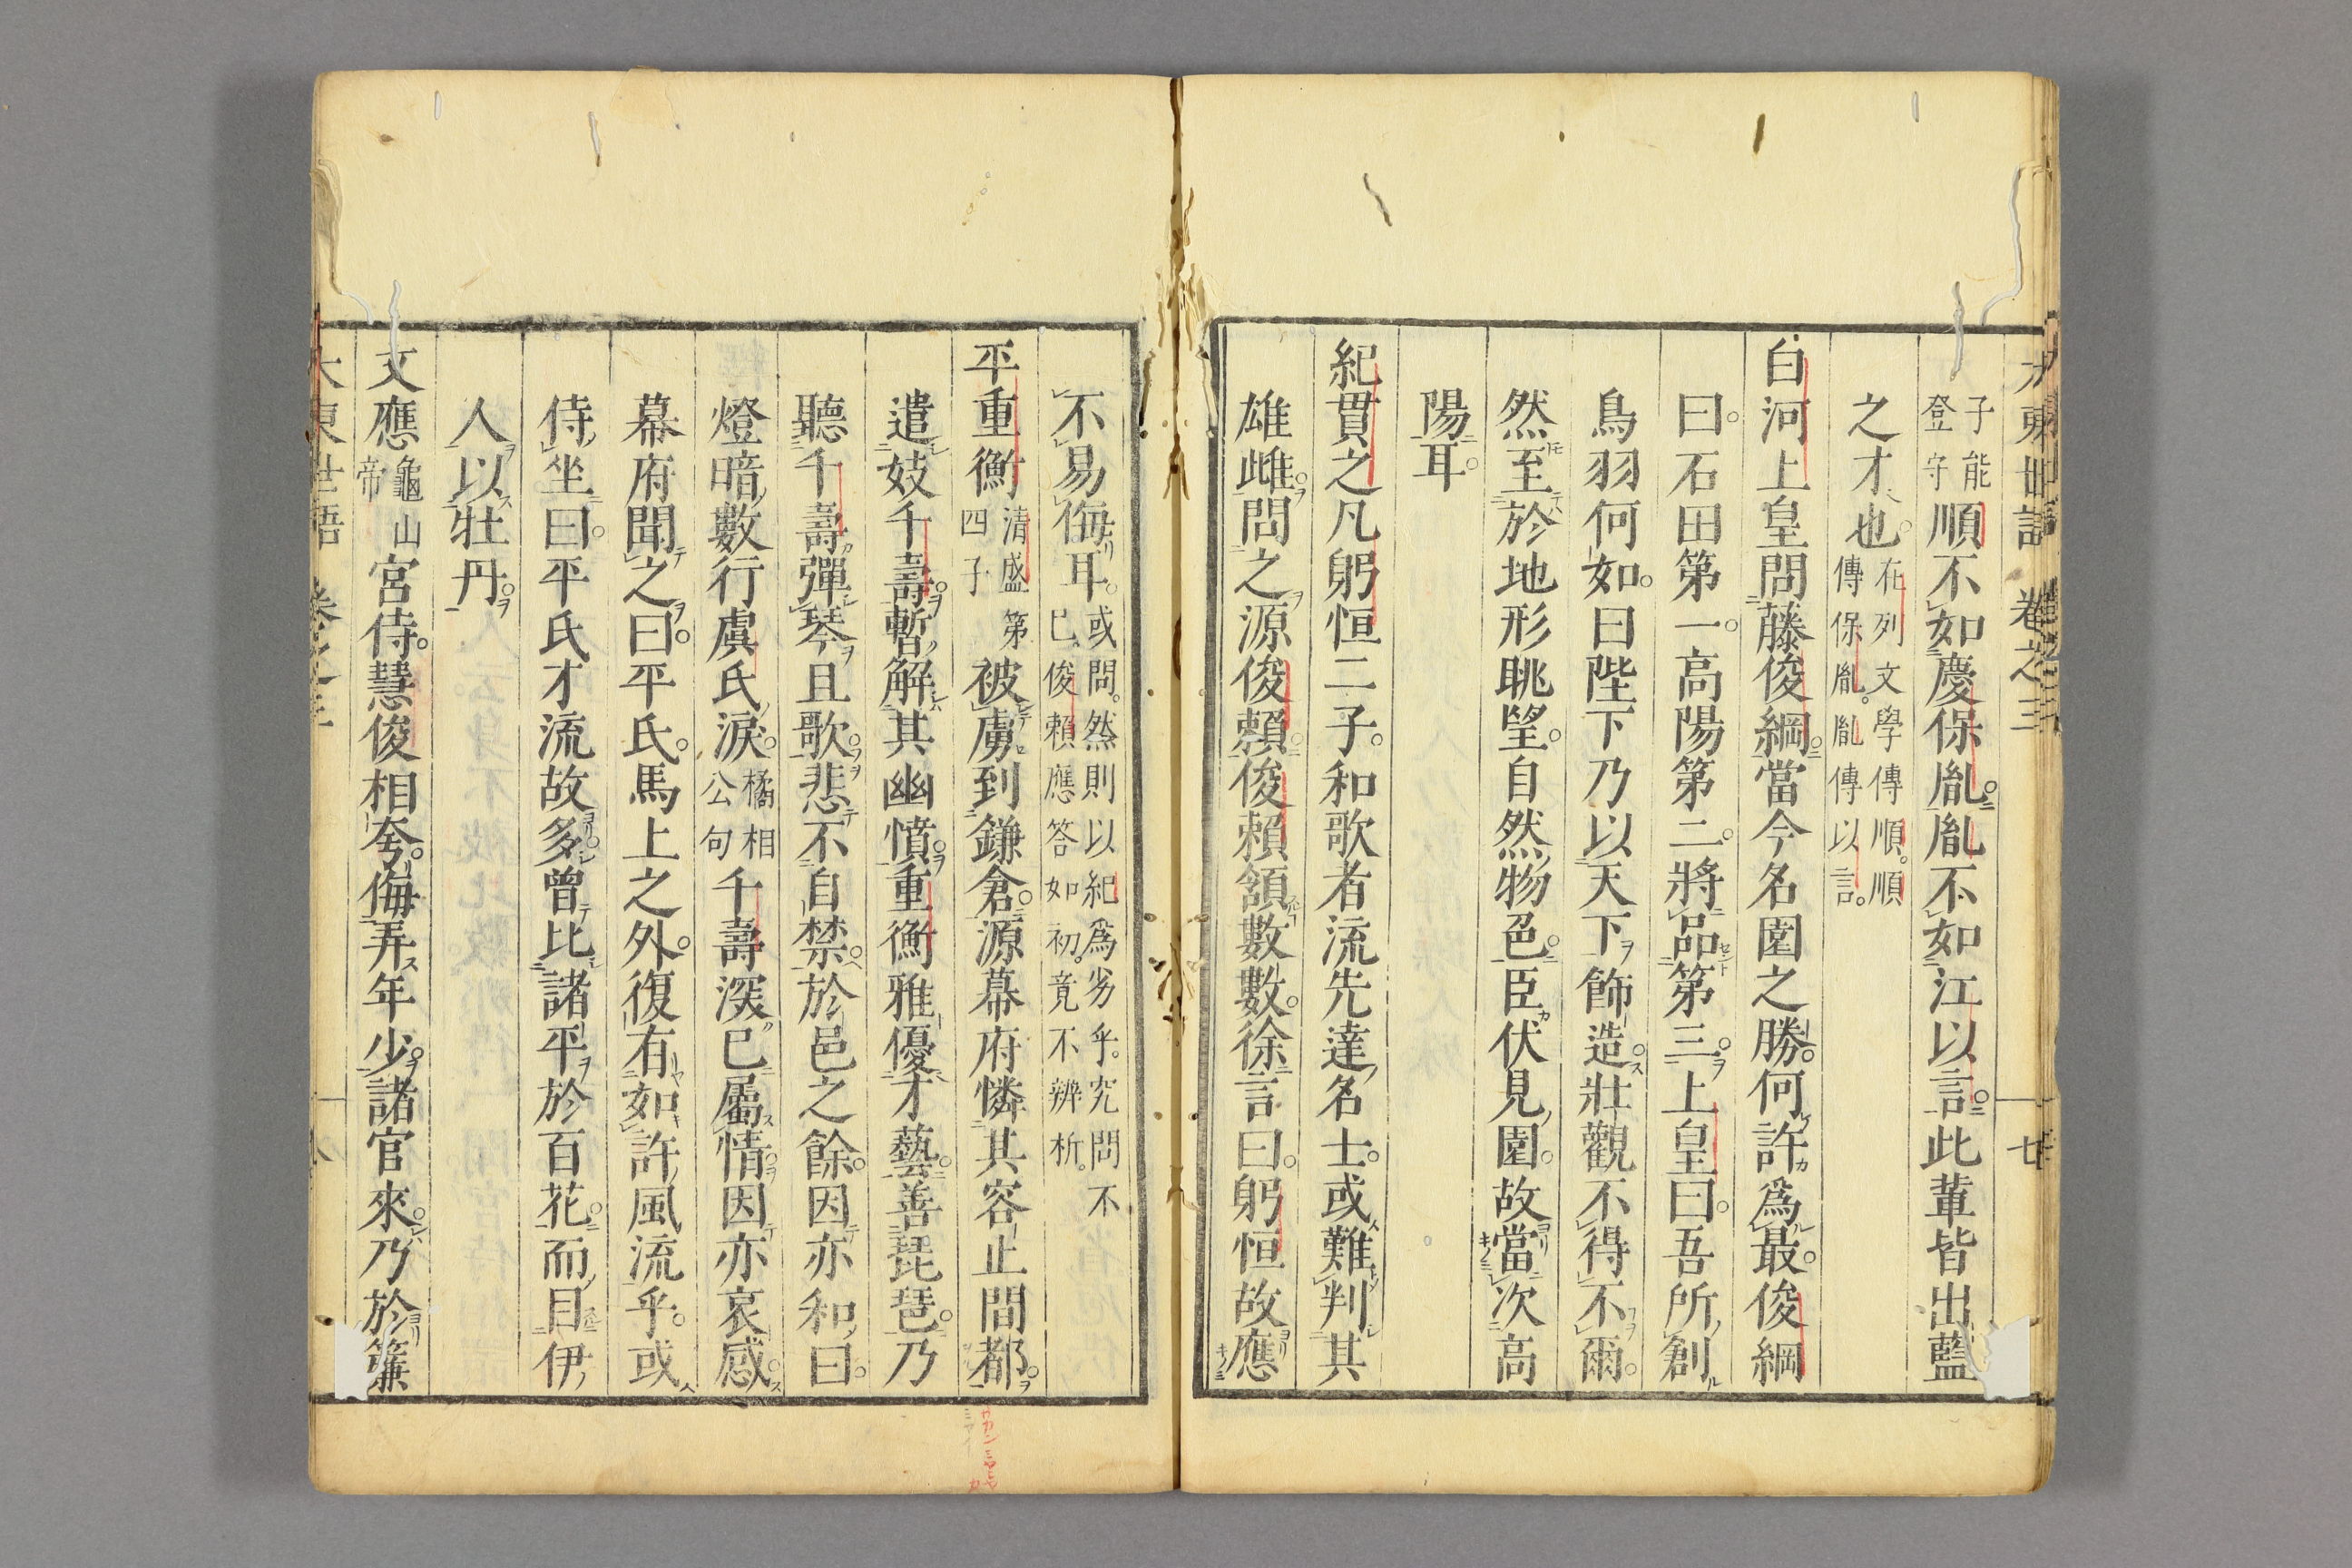 大東世語 卷之三 十七
子能登守順不如慶保胤胤不如江以言此輩皆出藍
之才也在列文學傳順。順傳保胤。胤傳以言。
白河上皇問藤俊綱當今名園之勝何許爲最俊綱
曰石田第一高陽第二將品第三上皇曰吾所創
鳥羽何如曰陛下乃以天下飾造壯觀不得不爾
然至於地形眺望自然物色臣伏見園故當次高
陽耳
紀貫之凡躬恒二子和歌者流先達名士或難判其
雄雌問之源俊賴俊賴頷數數徐言曰躬恒故應
不易侮耳或問。然則以紀爲劣乎。究問不已、俊賴應答如初。竟不辨析。
平重衡清盛第四子被虜到鎌倉源幕府憐其容止問都
遣妓千壽暫解其幽憤重衡雅優才藝善琵琶乃
聽千壽彈琴且歌悲不自禁於邑之餘因亦和曰
燈暗數行虞氏淚橘相公句千壽深已屬情因亦哀感
幕府聞之曰平氏馬上之外復有如許風流乎或
侍坐曰平氏才流故多曾比諸平於百花而目伊
人以牡丹
文應龜山帝宮侍慧俊相夸侮弄年少諸官來乃於簾
大東世語 卷之三 十八